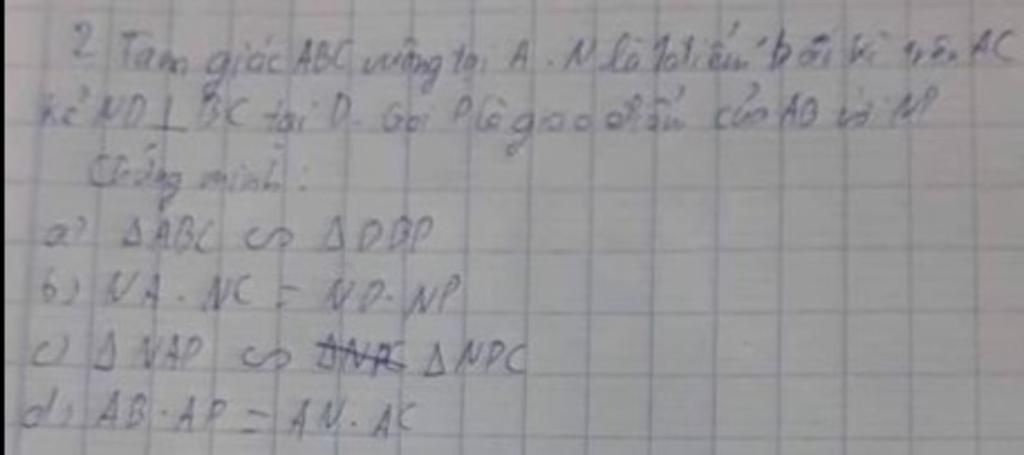 2 Tam giác ABC vuông tại A. N là 1 điểm bất kì trên AC
kẻ ND ⊥ BC tại D. Gọi P là giao điểm của AB và NP
Chứng minh:
a) ΔABC ∽ ΔDBP
b) NA . NC = ND . NP
c) ΔNAP ∽ ΔNPC
d) AB . AP = AN . AC